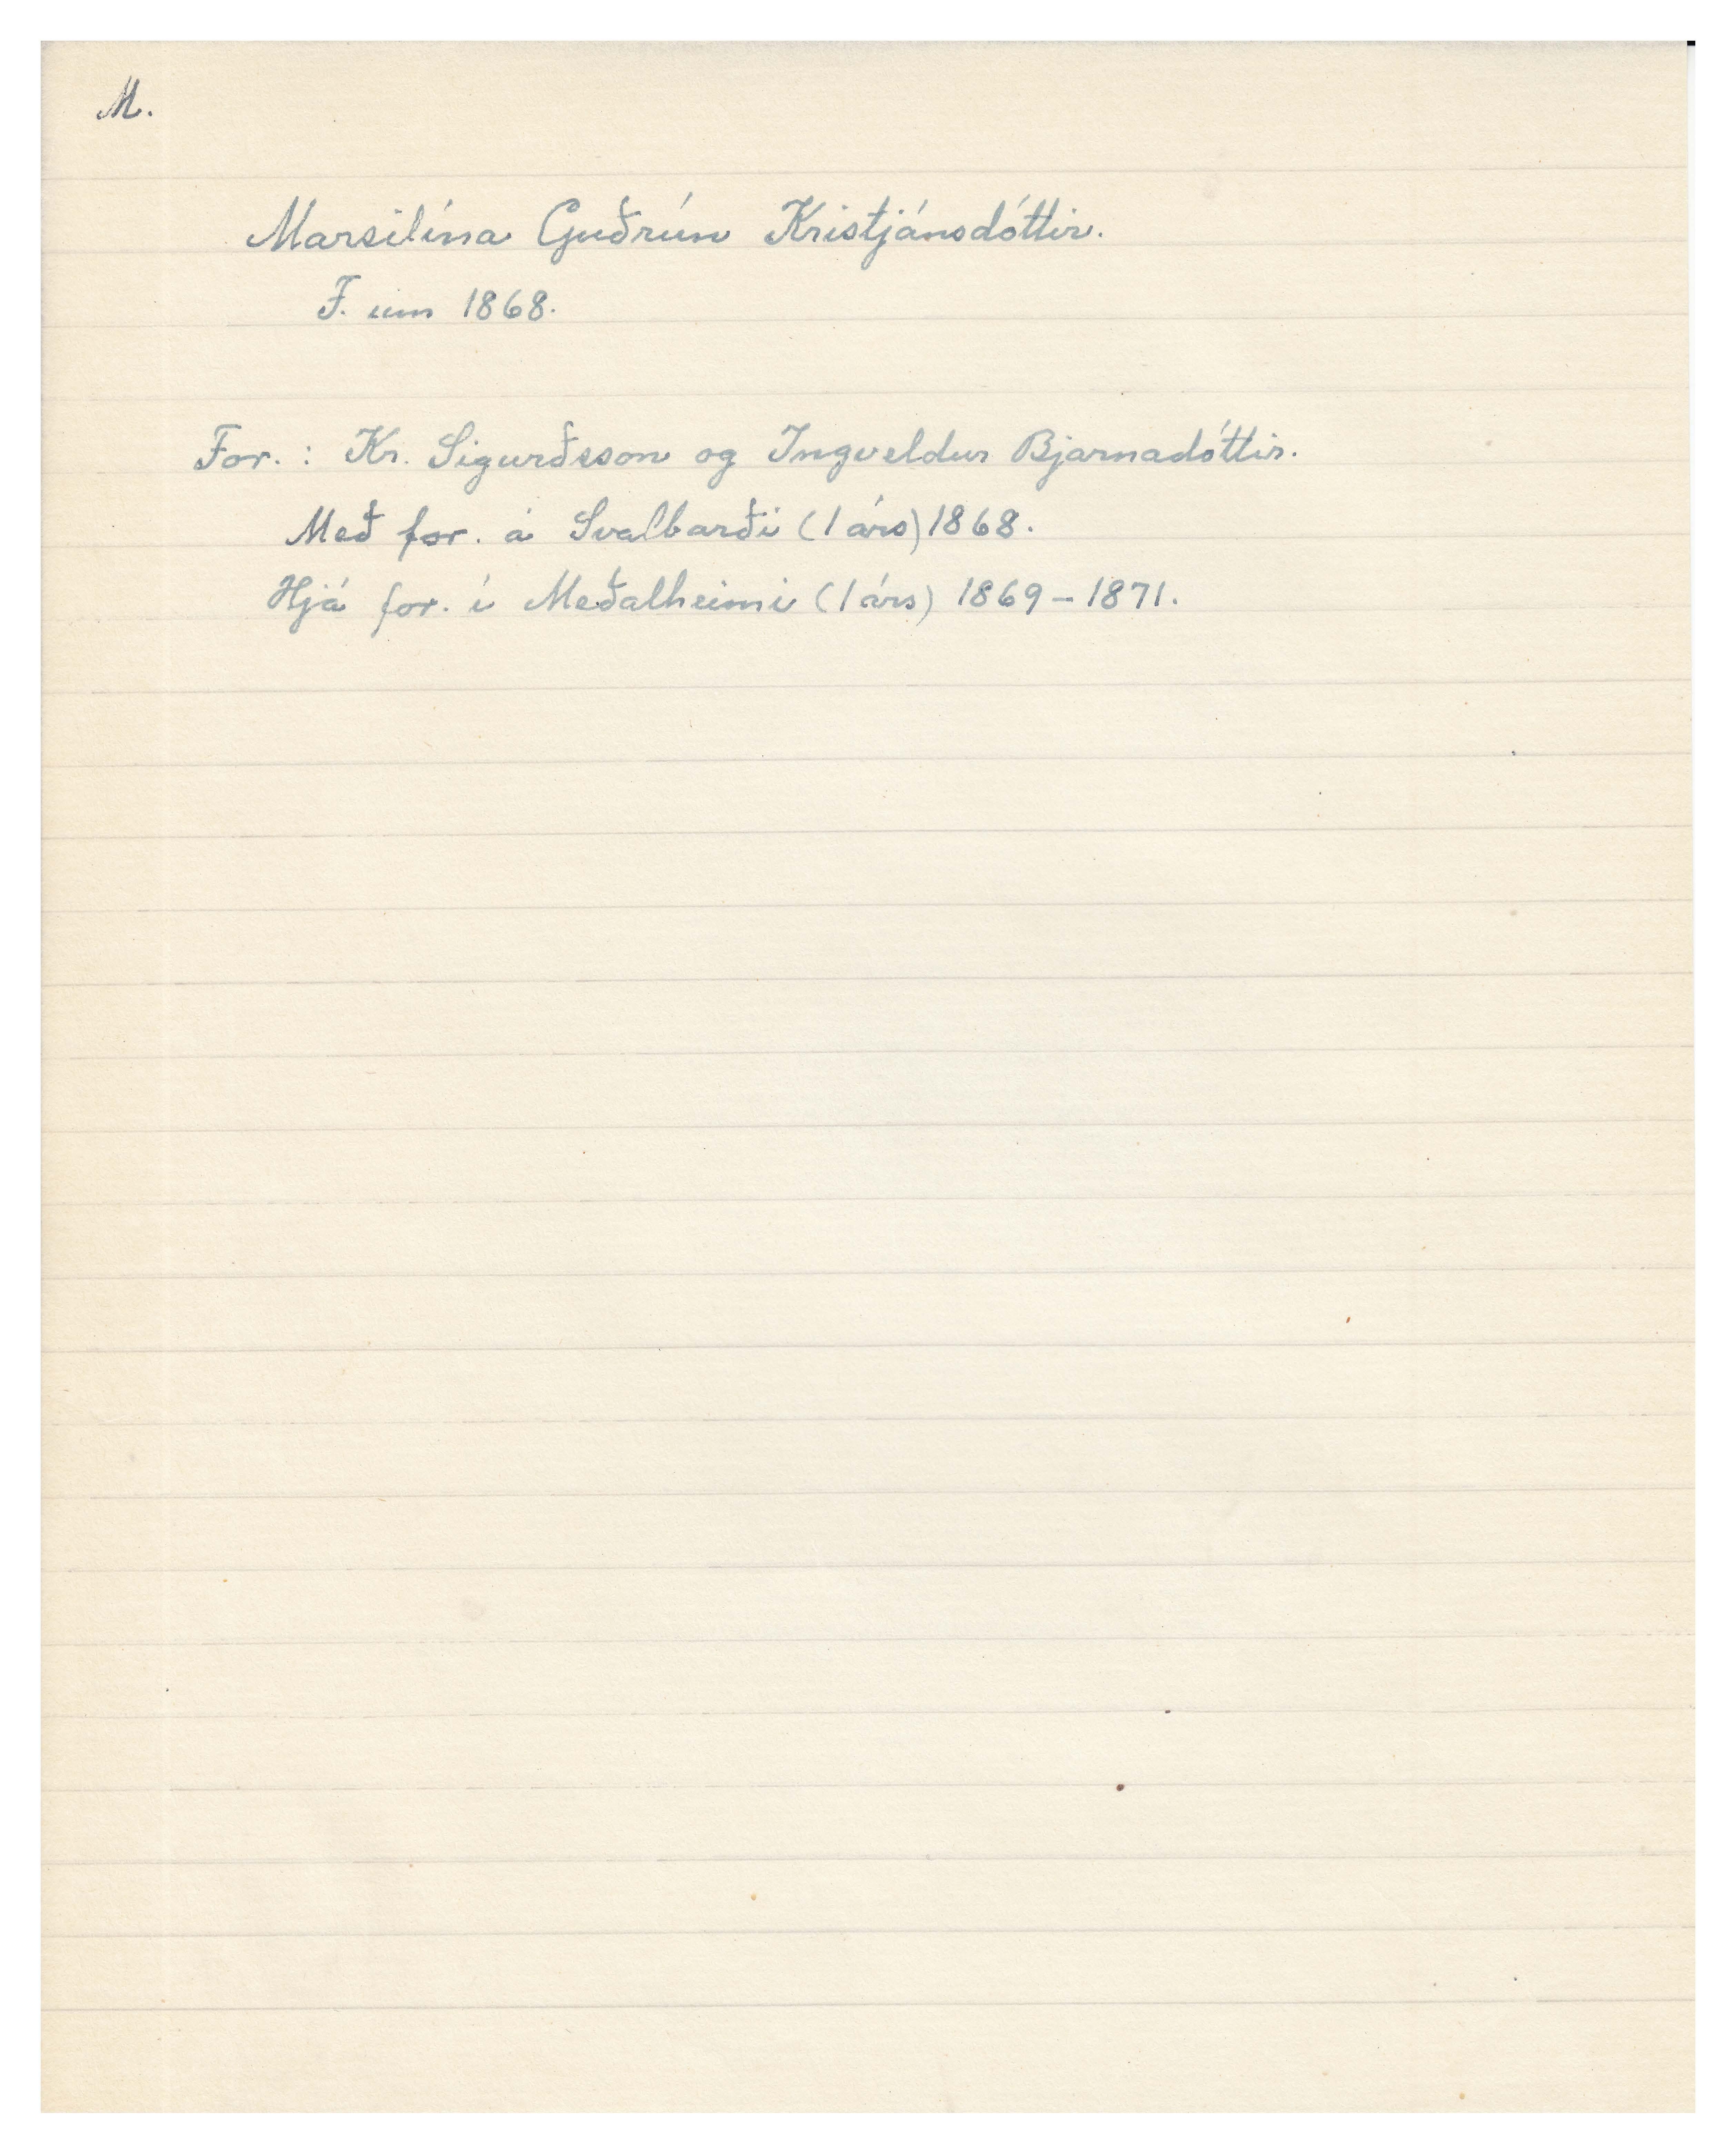 M.
Marsilína Guðrún Kristjánsdóttir.
F. um 1868.
For. : Kr. Sigurðsson og Ingveldur Bjarnadóttir.
Með for. á Svalbarði (1 árs) 1868.
Hjá for. í Meðalheimi (1 árs) 1869 - 1871.